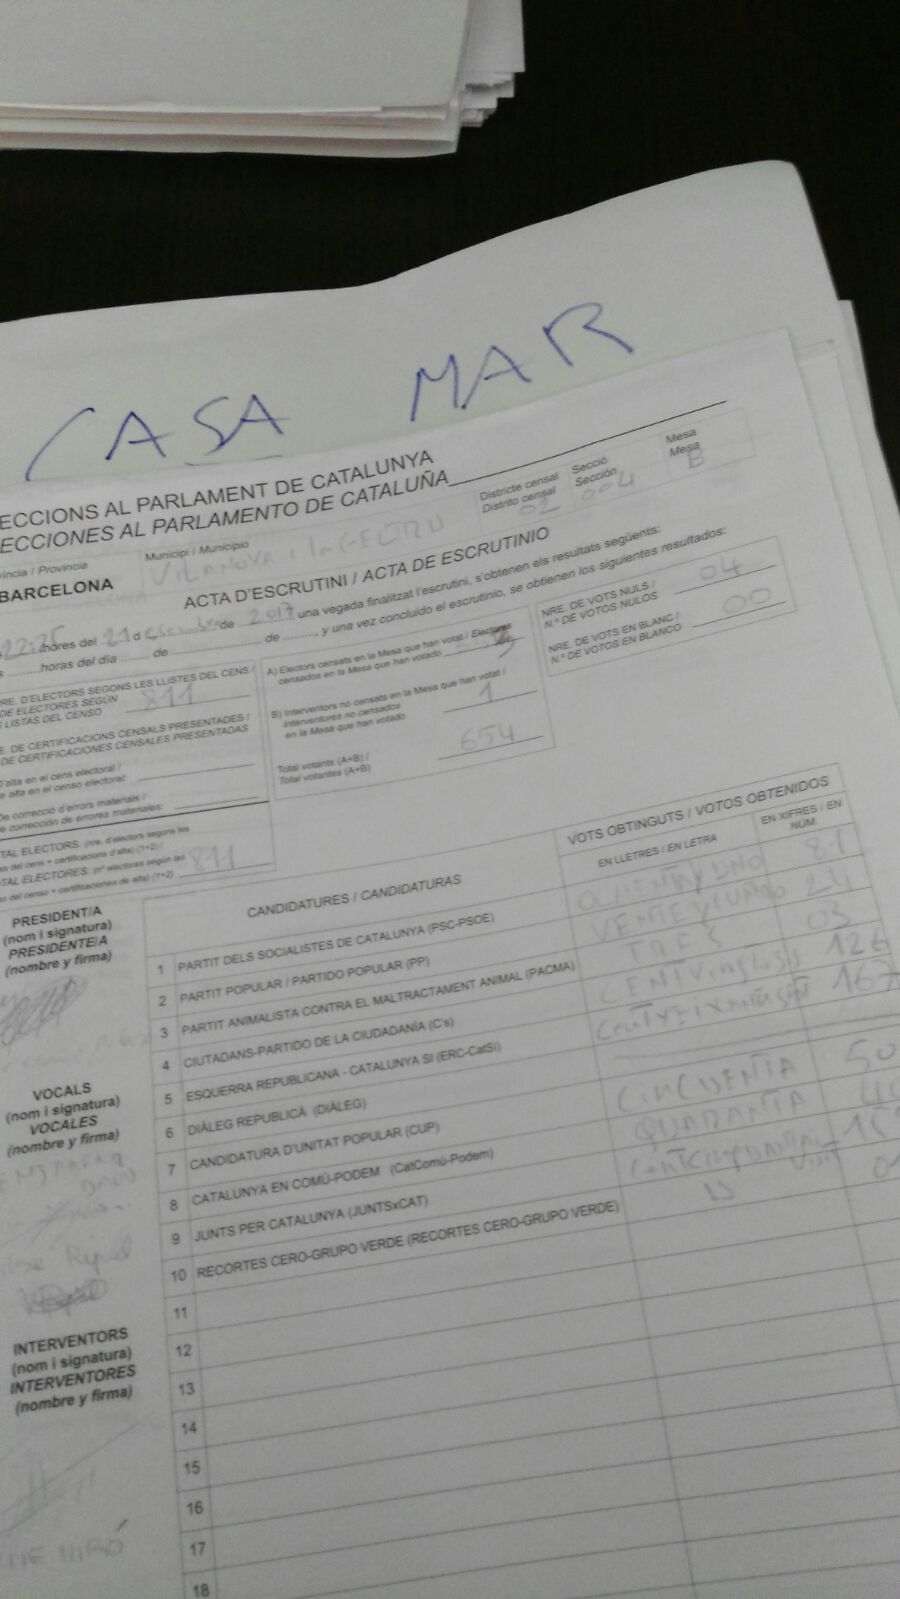 CASA MAR
ECCIONS AL PARLAMENT DE CATALUNYA
ECCIONES AL PARLAMENTO DE CATALUÑA
Districte censal
Distrito censal
02
Secció
Sección
004
Mesa
Mesa
B
víncia / Provincia
BARCELONA
Municipi / Municipio
VILANOVA i la GELTRU
ACTA D'ESCRUTINI / ACTA DE ESCRUTINIO
22:25 hores del 21 d de 2017 una vegada finalitzat l'escrutini, s'obtenen els resultats següents:
horas del día de de , y una vez concluido el escrutinio, se obtienen los siguientes resultados:
RE. D'ELECTORS SEGONS LES LLISTES DEL CENS /
DE ELECTORES SEGÚN
S LISTAS DEL CENSO 811
E. DE CERTIFICACIONS CENSALS PRESENTADES /
DE CERTIFICACIONES CENSALES PRESENTADAS
D'alta en el cens electoral /
e alta en el censo electoral:
De correcció d'errors materials /
e corrección de errores materiales:
TAL ELECTORS: (nre. d'electors segons les
es del cens + certificacions d'alta) (1+2) /
TAL ELECTORES: (nº electores según las
as del censo + certificaciones de alta) (1+2) 811
A) Electors censats en la Mesa que han votat / Electores
censados en la Mesa que han votado
B) Interventors no censats en la Mesa que han votat /
Interventores no censados
en la Mesa que han votado 1
Total votants (A+B) /
Total votantes (A+B) 654
NRE. DE VOTS NULS /
N.º DE VOTOS NULOS 04
NRE. DE VOTS EN BLANC /
N.º DE VOTOS EN BLANCO 00
PRESIDENT/A
(nom i signatura)
PRESIDENTE/A
(nombre y firma)
VOCALS
(nom i signatura)
VOCALES
(nombre y firma)
INTERVENTORS
(nom i signatura)
INTERVENTORES
(nombre y firma)
MIRÓ
CANDIDATURES / CANDIDATURAS
VOTS OBTINGUTS / VOTOS OBTENIDOS
EN LLETRES / EN LETRA
EN XIFRES / EN
NÚM.
1 PARTIT DELS SOCIALISTES DE CATALUNYA (PSC-PSOE) 81
2 PARTIT POPULAR / PARTIDO POPULAR (PP) 21
3 PARTIT ANIMALISTA CONTRA EL MALTRACTAMENT ANIMAL (PACMA) TRES 03
4 CIUTADANS-PARTIDO DE LA CIUDADANÍA (C's) 126
5 ESQUERRA REPUBLICANA - CATALUNYA SI (ERC-CatSí) 167
6 DIÀLEG REPUBLICÀ (DIÀLEG)
7 CANDIDATURA D'UNITAT POPULAR (CUP) CINCUENTA 50
8 CATALUNYA EN COMÚ-PODEM (CatComú-Podem) QUADANTA
9 JUNTS PER CATALUNYA (JUNTSxCAT)
10 RECORTES CERO-GRUPO VERDE (RECORTES CERO-GRUPO VERDE)
11
12
13
14
15
16
17
18